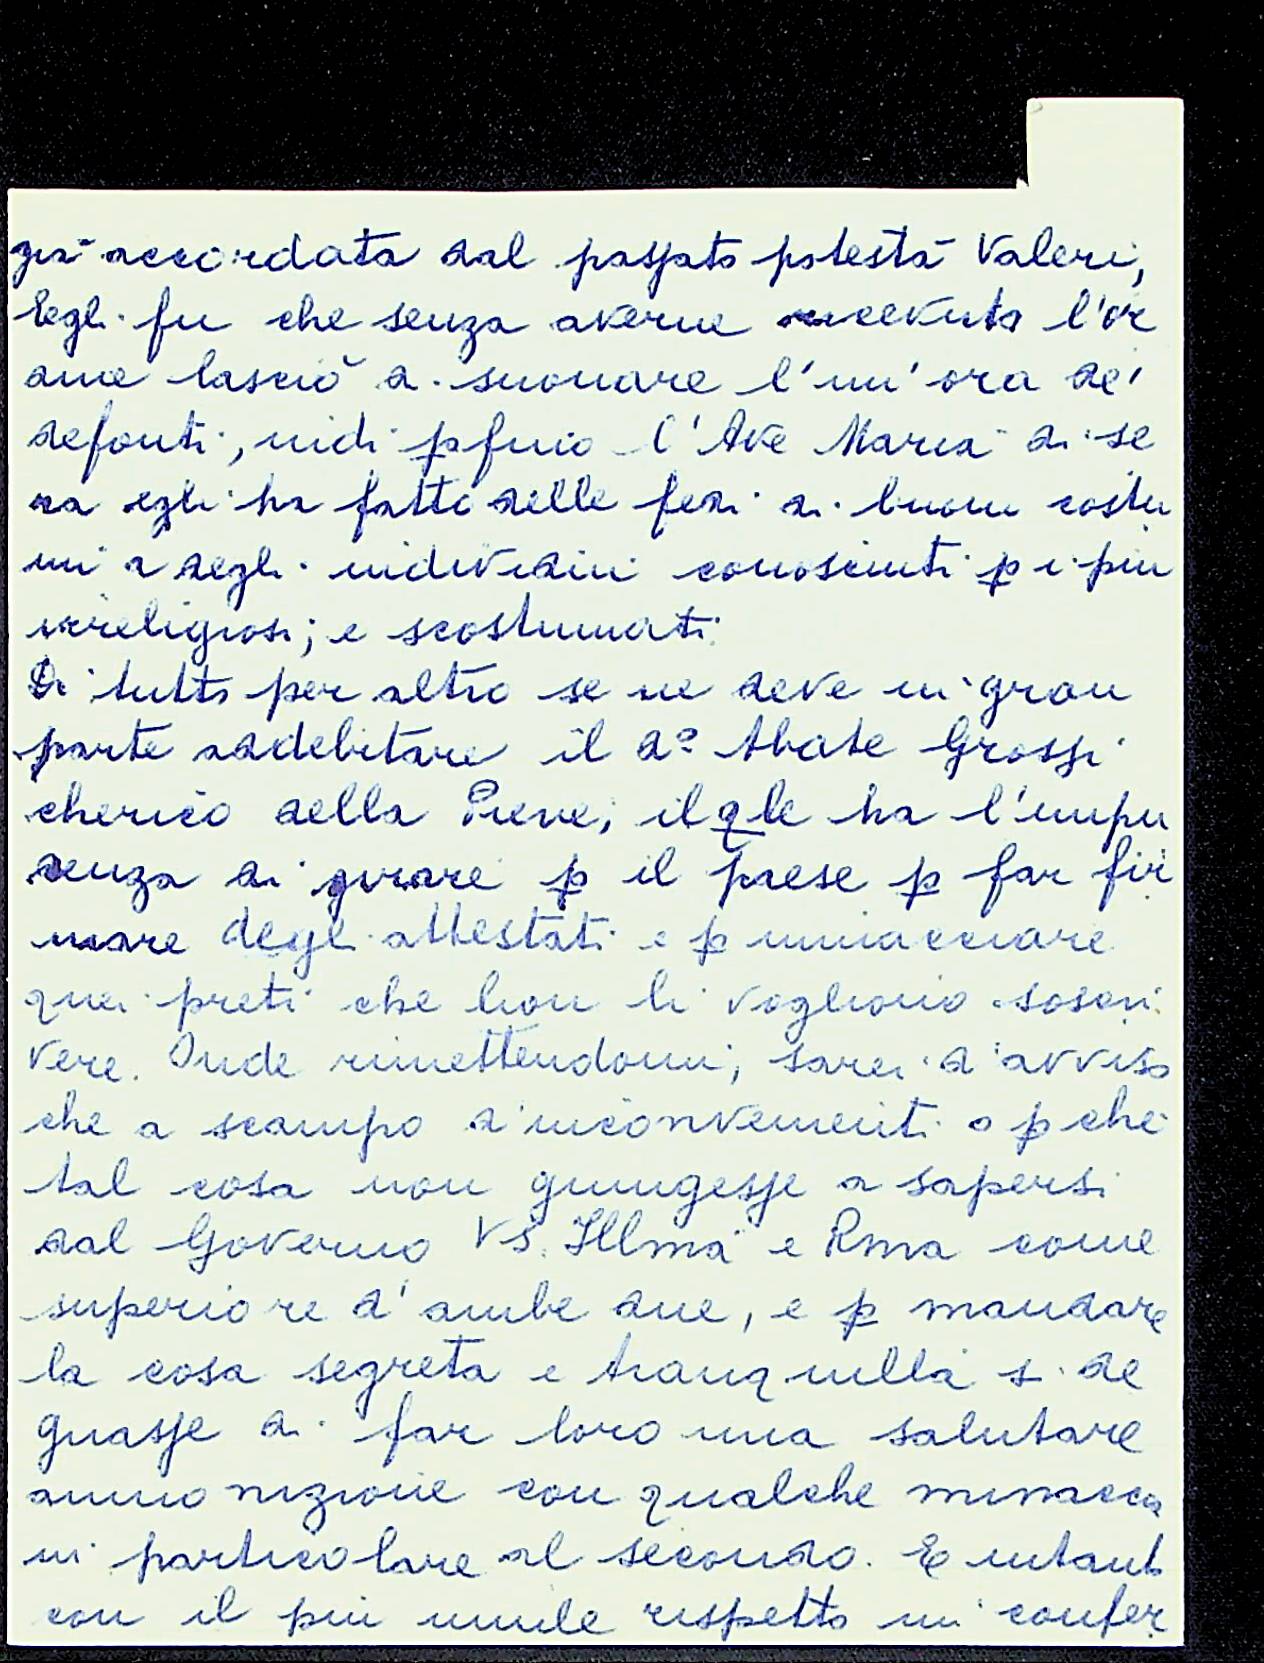 già accordata dal passato potestà Valeri,
Egli fu che senza averne ricevuto l'or
dine lasciò di suonare l'un'ora de'
defonti, indi pfino l'Ave Maria di se
ra egli ha fatto delle fedi di buoni costu
mi a degli individui conosciuti p i più
irreligiosi; e scostumati
Di tutto per altro se ne deve in gran
parte addebitare il do Abate Grossi
cherico della Pieve, il qle ha l'impu
denza di girare p il paese p far fir
mare degli attestati e p minacciare
quei preti che non li vogliono soscri
vere. Onde rimettendomi, sarei d'avviso
che a scampo d'inconvenienti o pchè
tal cosa non giungesse a sapersi
dal Governo VS. Illma e Rma come
superiore d'ambe due, e p mandare
la cosa segreta e tranquilla si de
gnasse di far loro una salutare
ammonizione con qualche minaccia
in particolare al secondo. E intanto
con il più umile rispetto mi confer